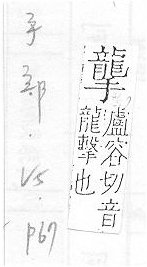 盧容切音
龍擊也
手部.V5.P67